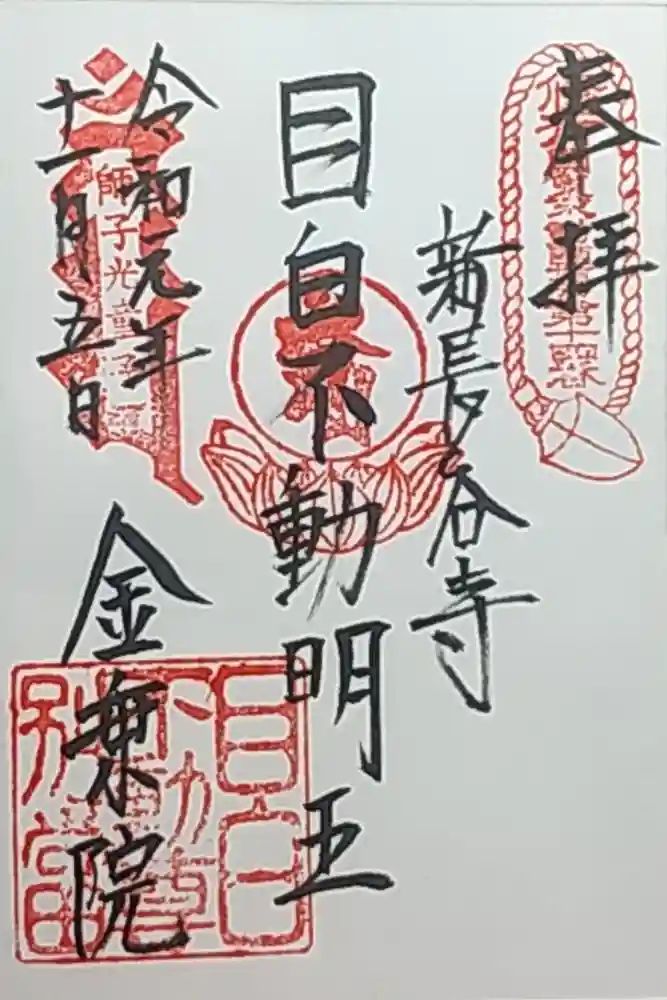 奉拝
新長谷寺
目白不動明王
令和元年
十一月十五日
金乗院
師子光童子
目白不動堂別當